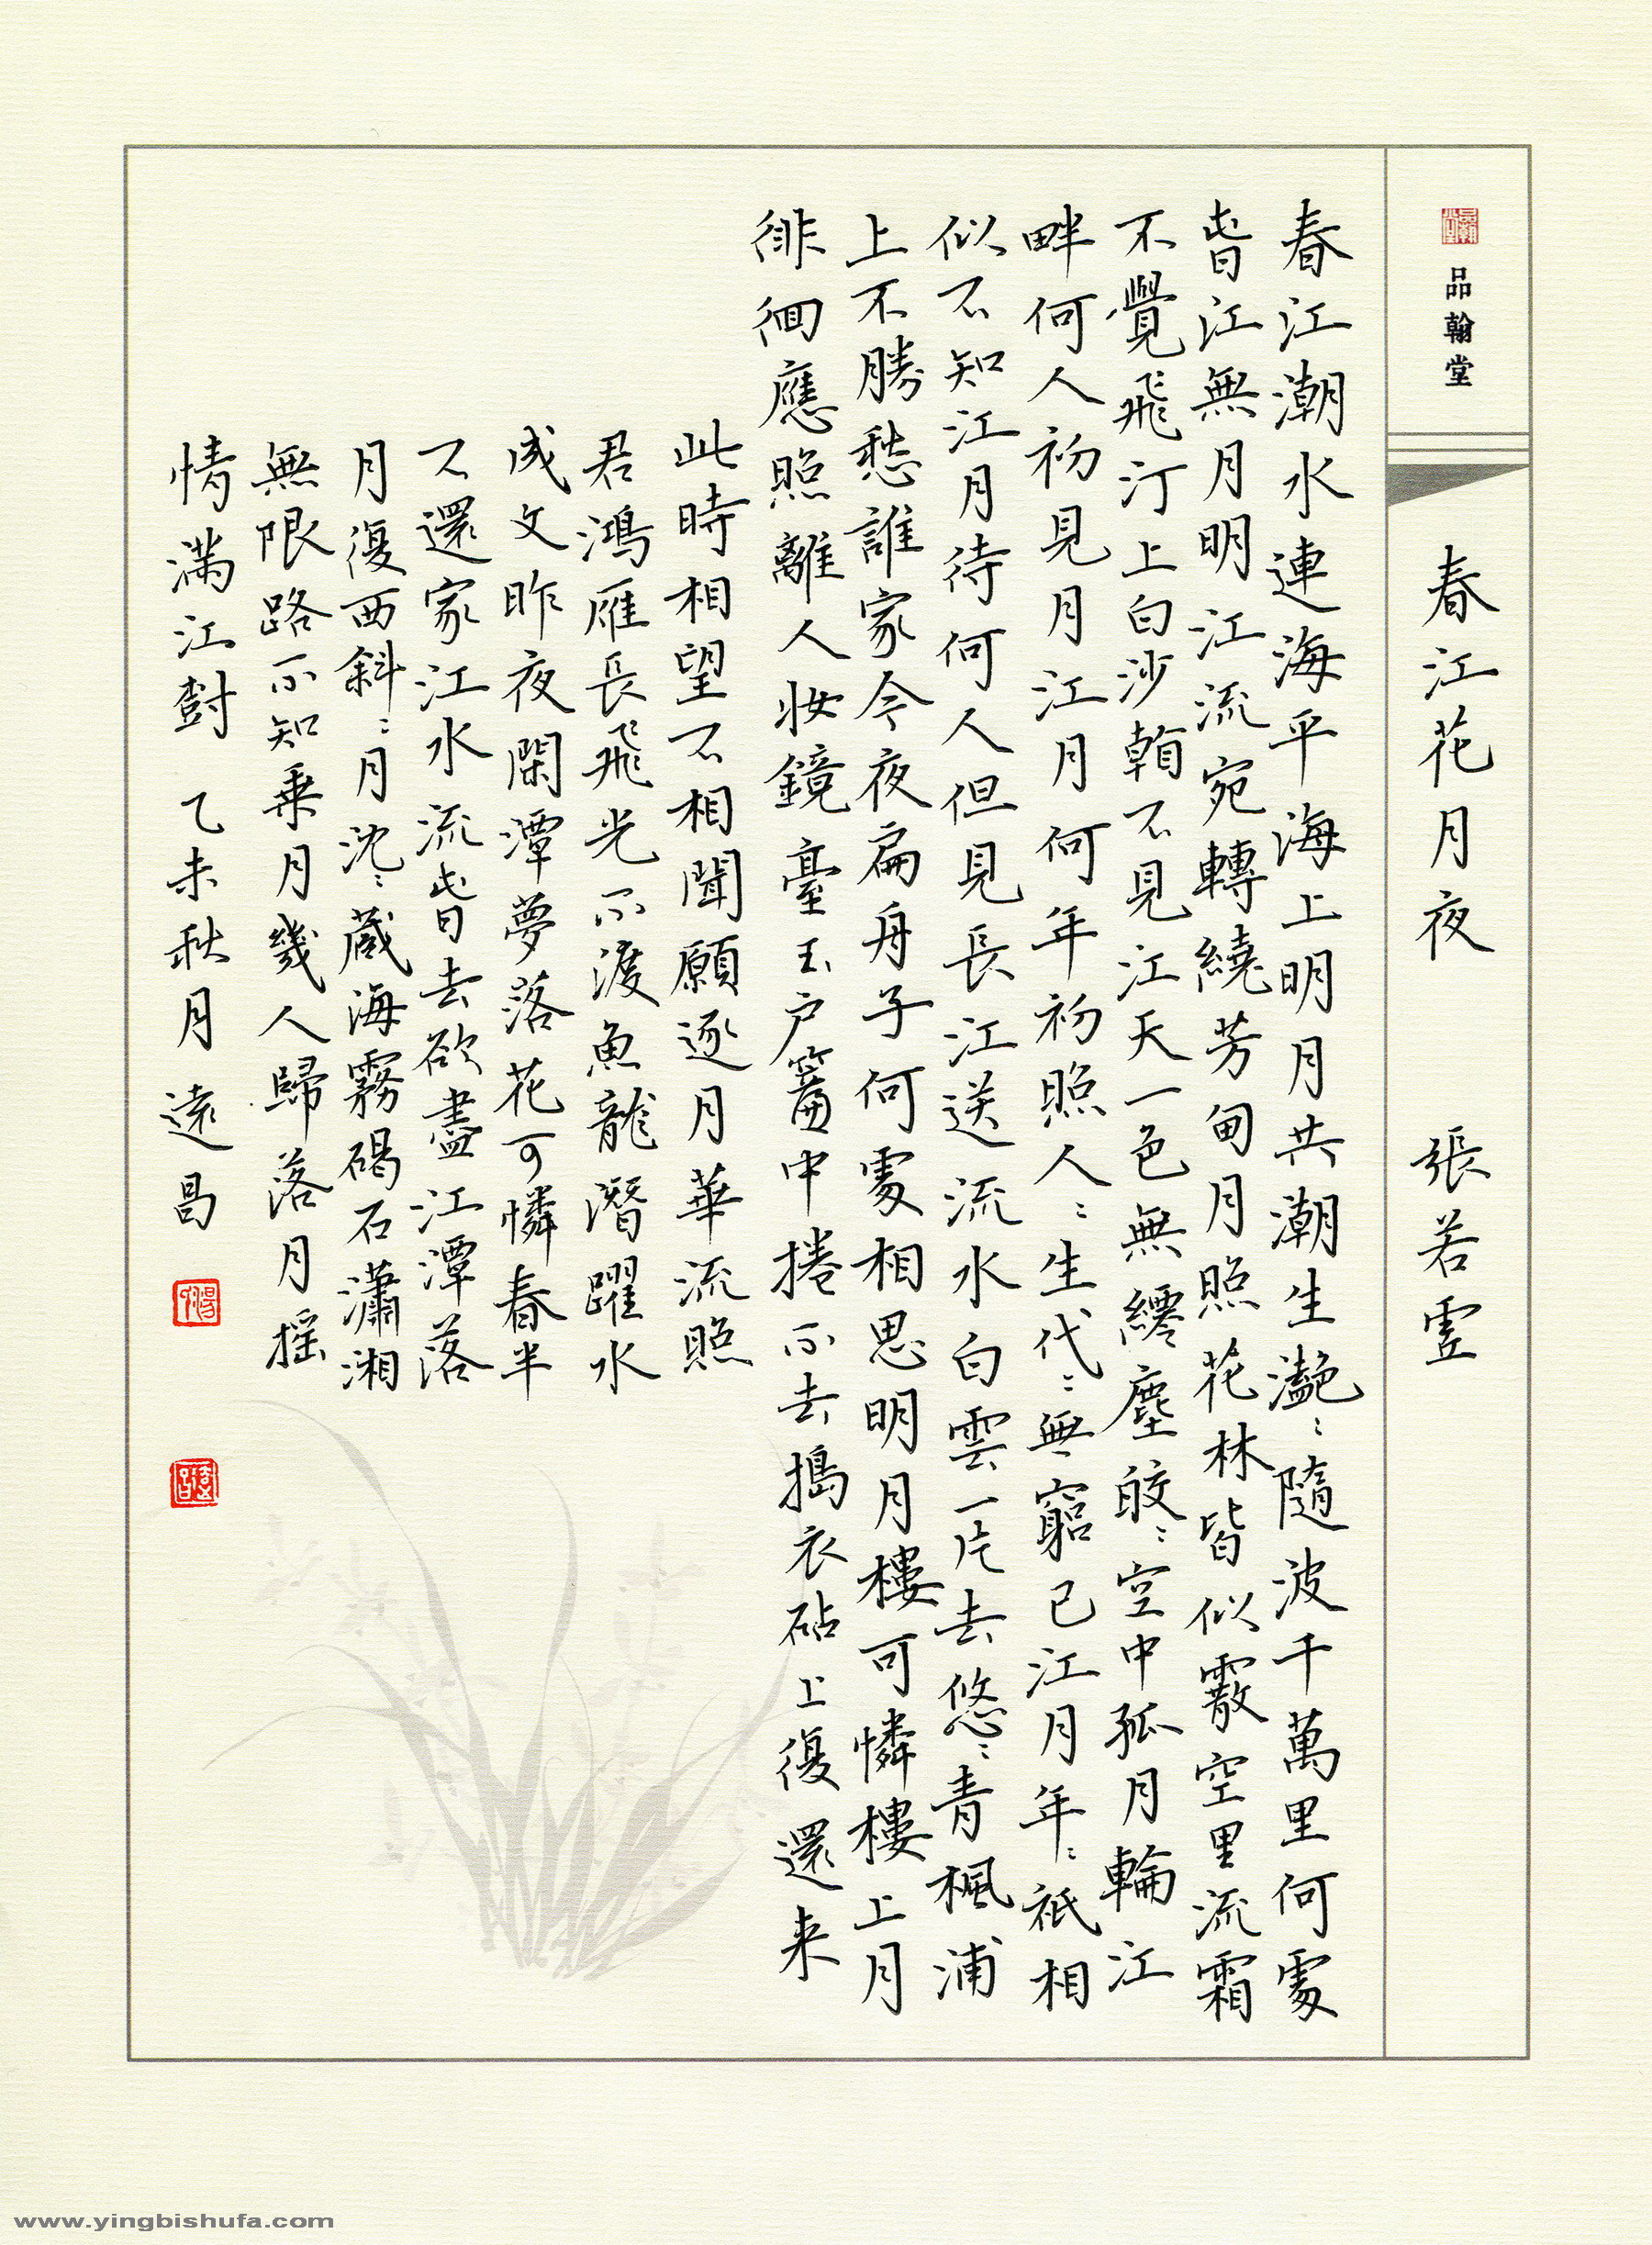 品翰堂
春江花月夜 張若虛
春江潮水連海平海上明月共潮生灧〻隨波千萬里何處
旹江無月明江流宛轉繞芳甸月照花林皆似霰空里流霜
不覺飛汀上白沙看不見江天一色無纖塵皎〻空中孤月輪江
畔何人初見月江月何年初照人〻生代〻無窮已江月年〻祇相
似不知江月待何人但見長江送流水白雲一片去悠〻青楓浦
上不勝愁誰家今夜扁舟子何處相思明月樓可憐樓上月
徘徊應照離人妝鏡臺玉戶簾中捲不去搗衣砧上復還来
此時相望不相聞願逐月華流照
君鴻雁長飛光不渡魚龍潛躍水
成文昨夜閑潭夢落花可憐春半
不還家江水流旹去欲盡江潭落
月復西斜〻月沈〻蔵海霧碣石瀟湘
無限路不知乗月幾人歸落月摇
情滿江樹 乙未秋月 遠昌
www.yingbishufa.com